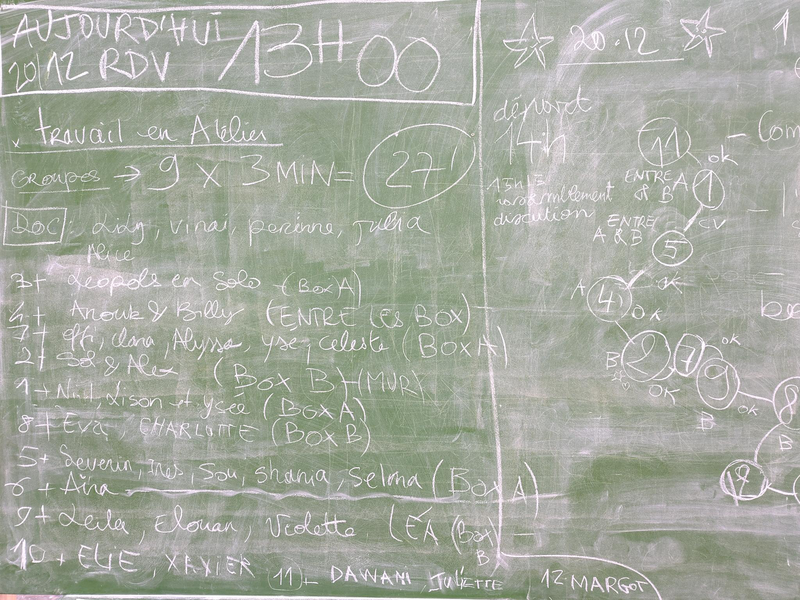 AUJOURD'HUI
20/12 RDV 13H00
x travail en Atelier
GROUPES → 9 X 3 MIN = 27'
DOC : Lidy, vinai, perinne, julia
Alice
3+ Leopols en Solo (Box A)
4+ Anouk & Billy (ENTRE LES BOX)
7+ effi, clara, Alyssa, yse, celeste (BOX A)
2+ Sol & Alex (BOX B)+(MUR)
1+ Lison et ysée (BOX A)
8+ Eva CHARLOTTE (BOX B)
5+ Severin, Ines, Sou, shania, Selma (Box A)
6+ Aïna
9+ Leila, Elouan, Violette, LÉA (Box B)
10+ ELIE, XAVIER
11)- DAWANI JULIETTE
12 MARGOT
20.12
départ
14h
rassemblement
discution
11 ok
ENTRE A & B
1
CV
ENTRE A & B
5
ok
A 4 OK
B 2 OK
7 ok
9 B ok
8 B